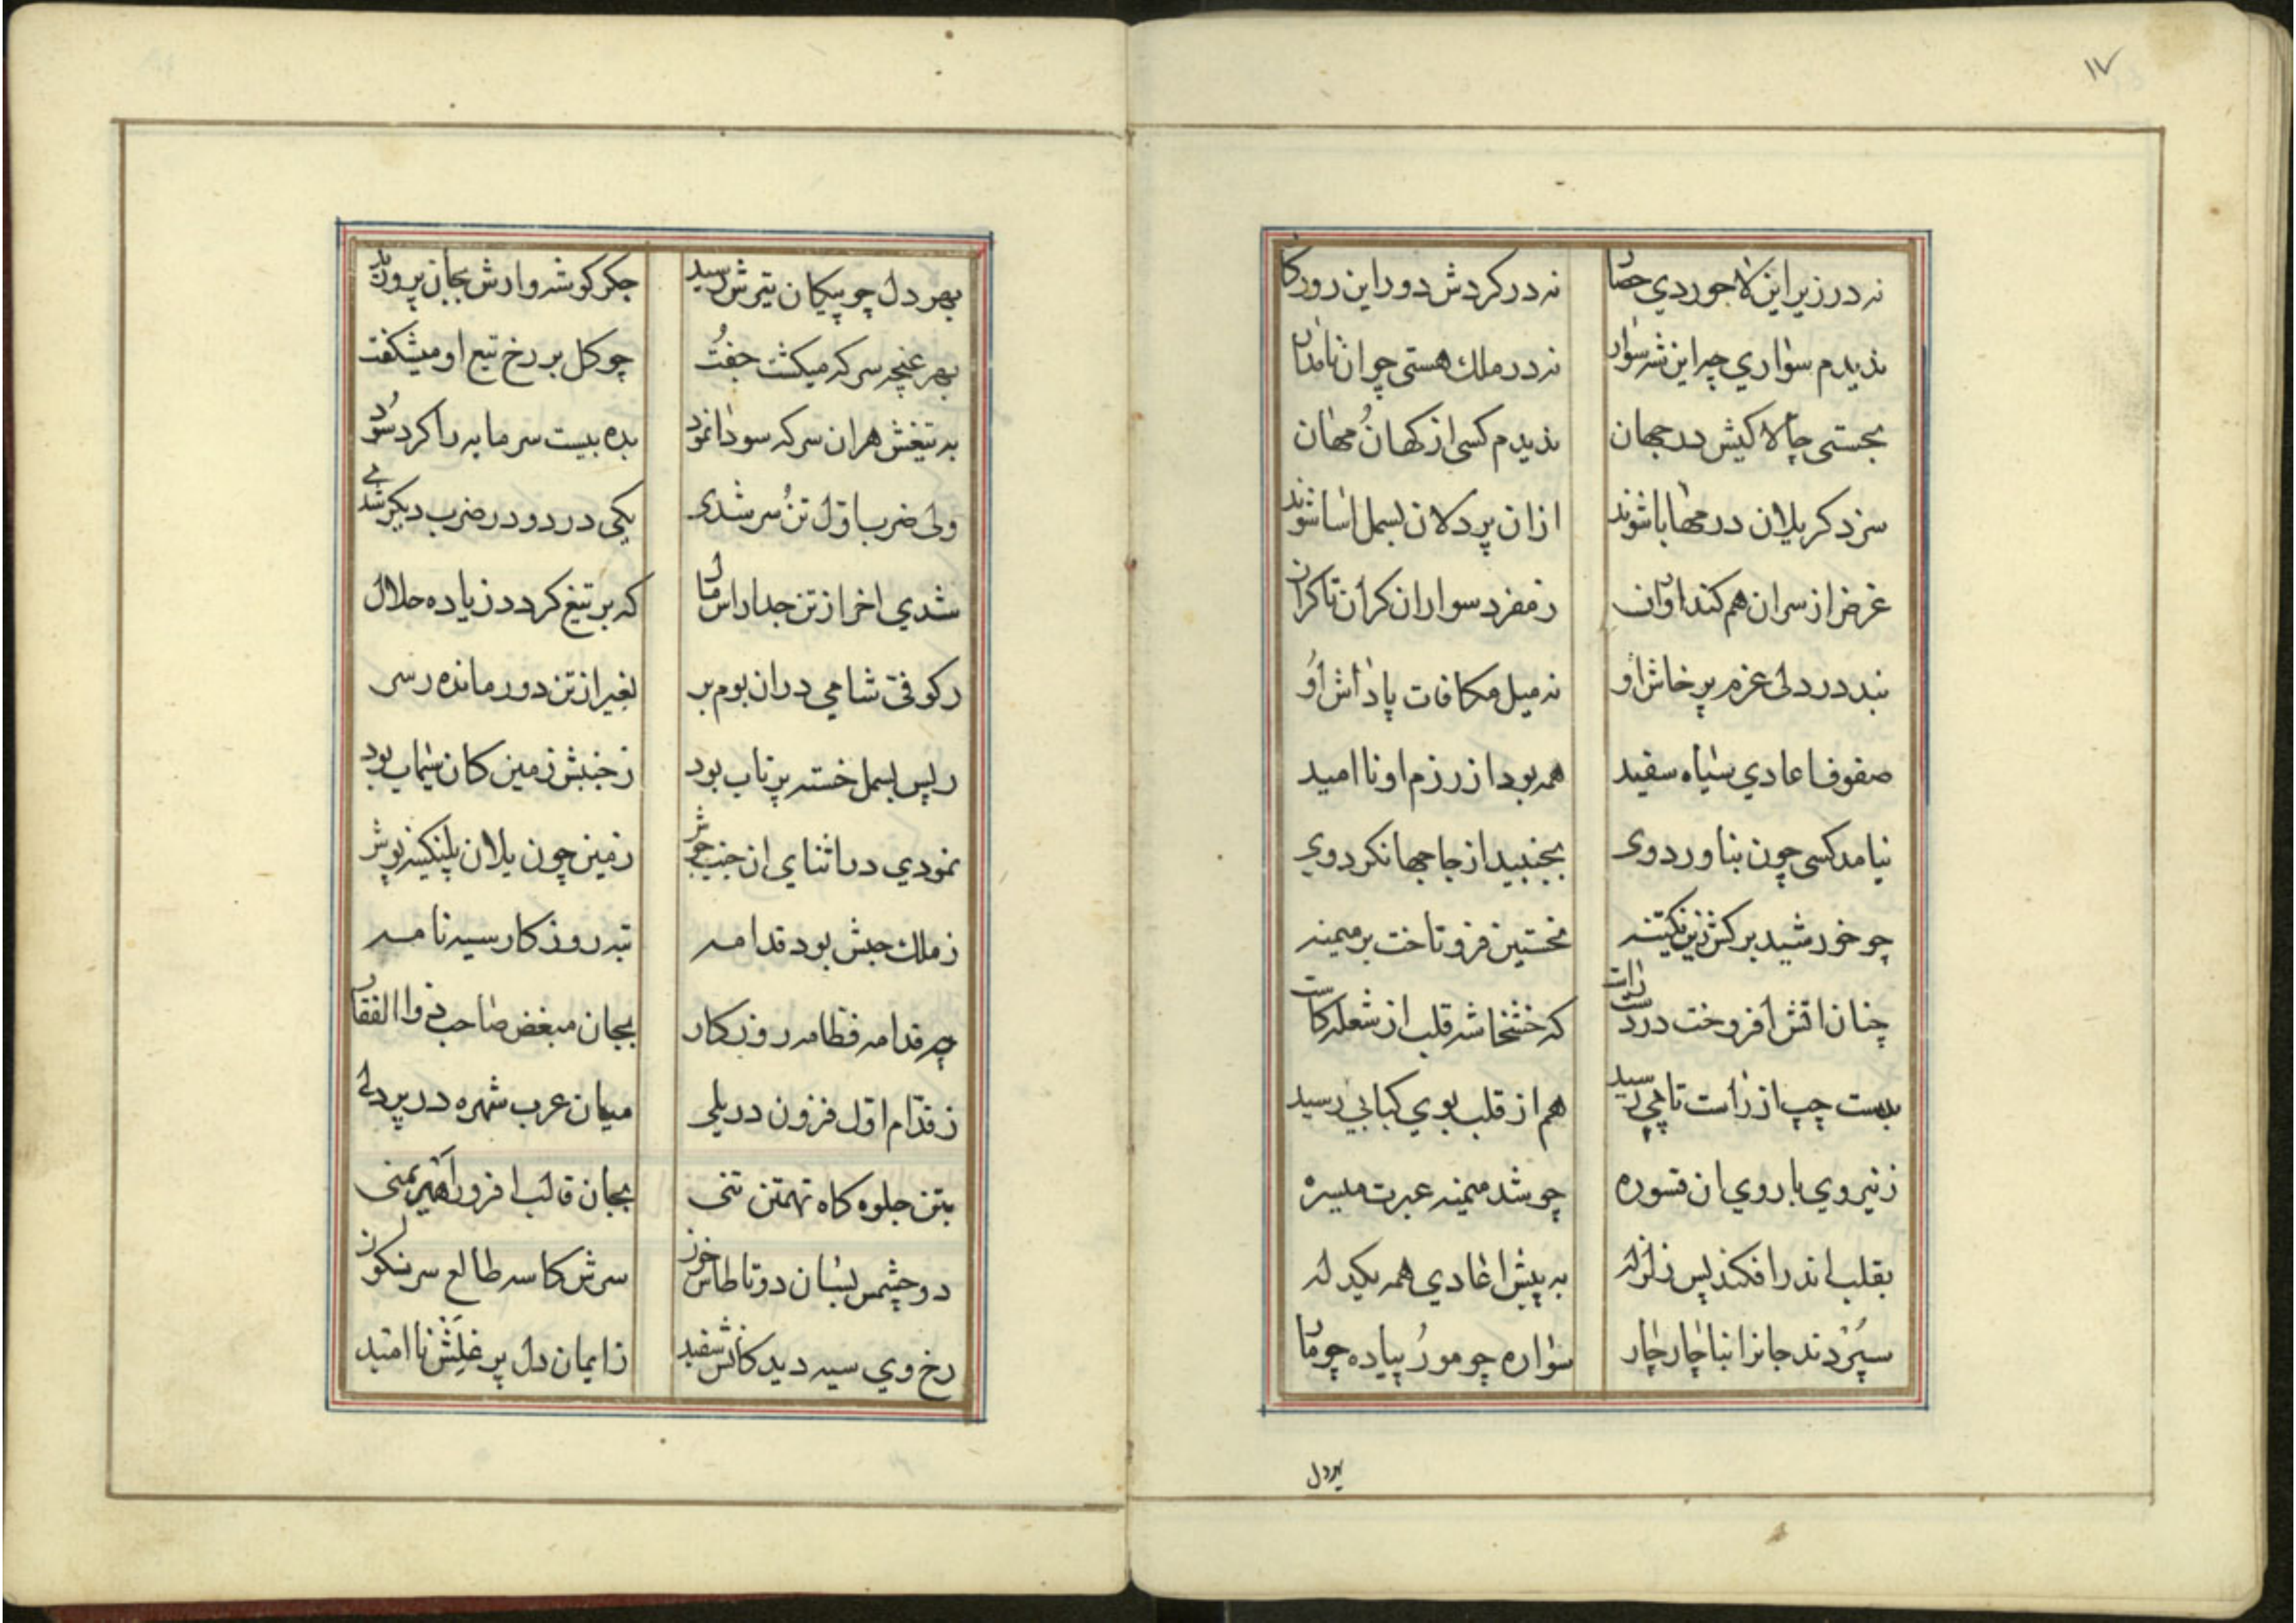 ١٧
نه در زیر این لاجوردي حصار نه در کردش دور این روزکار
ندیدم سواري چه این شهسوار نه در ملك هستی چو ان نامدار
بجستی چالاکیش در جهان ندیدم کسی از کهان ُ مهان
سزد کر یلان در مهابا شوند از ان پر دلان بسمل اسا شوند
غرض از سران هم کنداوران ز مفرد سواران کران تا کران
نبد در دلی عزم پرخاش او نه میل مکافات پاداش او
صفوف اعادي سیاه سفید همه بود از رزم او نا امید
نیامد کسی چون بناورد وی بجنبید از جا جهانکرد وي
چو خورشید برکش زرین نخستین فرو تاخت بر میمنه
چنان اتش افروخت در دست راست که خشخاشه قلب از شعله کاست
بدست چپ از راست تا می رسید هم از قلب بوي کبابي رسید
ز نیروي باروي ان قسوره چو شد میمنه عبرت میسره
بقلب اندر افکند پس زلزله به پیش اعادي همه یکدله
سپردند جانرا بناچار چار سواره چو مور ُ پیاده چو مار
بهر دل
بهر دل چو پیکان تیرش رسید جکر کوشه وارش بجان پرورید
بهر غنچه سر که میکشت جفت چو کل بر رخ تیغ او میشکفت
به تیغش هر ان سر که سودا نمود بده بیست سرمایه را کرد سود
ولی ضرب اوّل تن ُ سر شدی یکی در دو و در ضرب دیکر شدی
شدي اخر از تن جدا راس مال که بر تیغ کردد زیاده حلال
رکوفی شامي در ان بوم بر بغیر از تن دور مانده ز سر
ز پس بسمل خسته پرتاب بود ز جنبش زمین کان سیماب بود
نمودي در اثناي ان جنب جوش زمین چون یلان پلنکینه پوش
ز ملك حبش بود قدامه تبه روزکار سیه نامه
چه قدامه قطامه روزکار بجان مبغض صاحب ذوالفقار
ز قدّام اوّل فزون در یلی میان عرب شهره در پر دلی
بتن جلوه کاه تهمتن تنی بجان قالب افروز اهریمنی
دو چشمس بسان دو تا طاس خون سرش کاسه طالع سر نکون
رخ وي سیه دید کانش سفید ز ایمان دل پر غلش نا امید